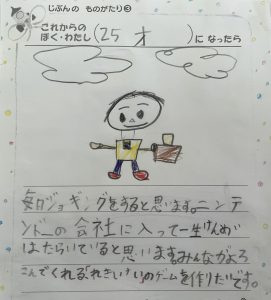 じぶんの ものがたり③
これからの
ぼく・わたし(25才)になったら
毎日ジョギングをすると思います。ニンテ
ンドーの会社に入って一生けんめい
はたらいていると思います。みんながよろ
こんでくれる、れきしいのゲームを作りたいです。